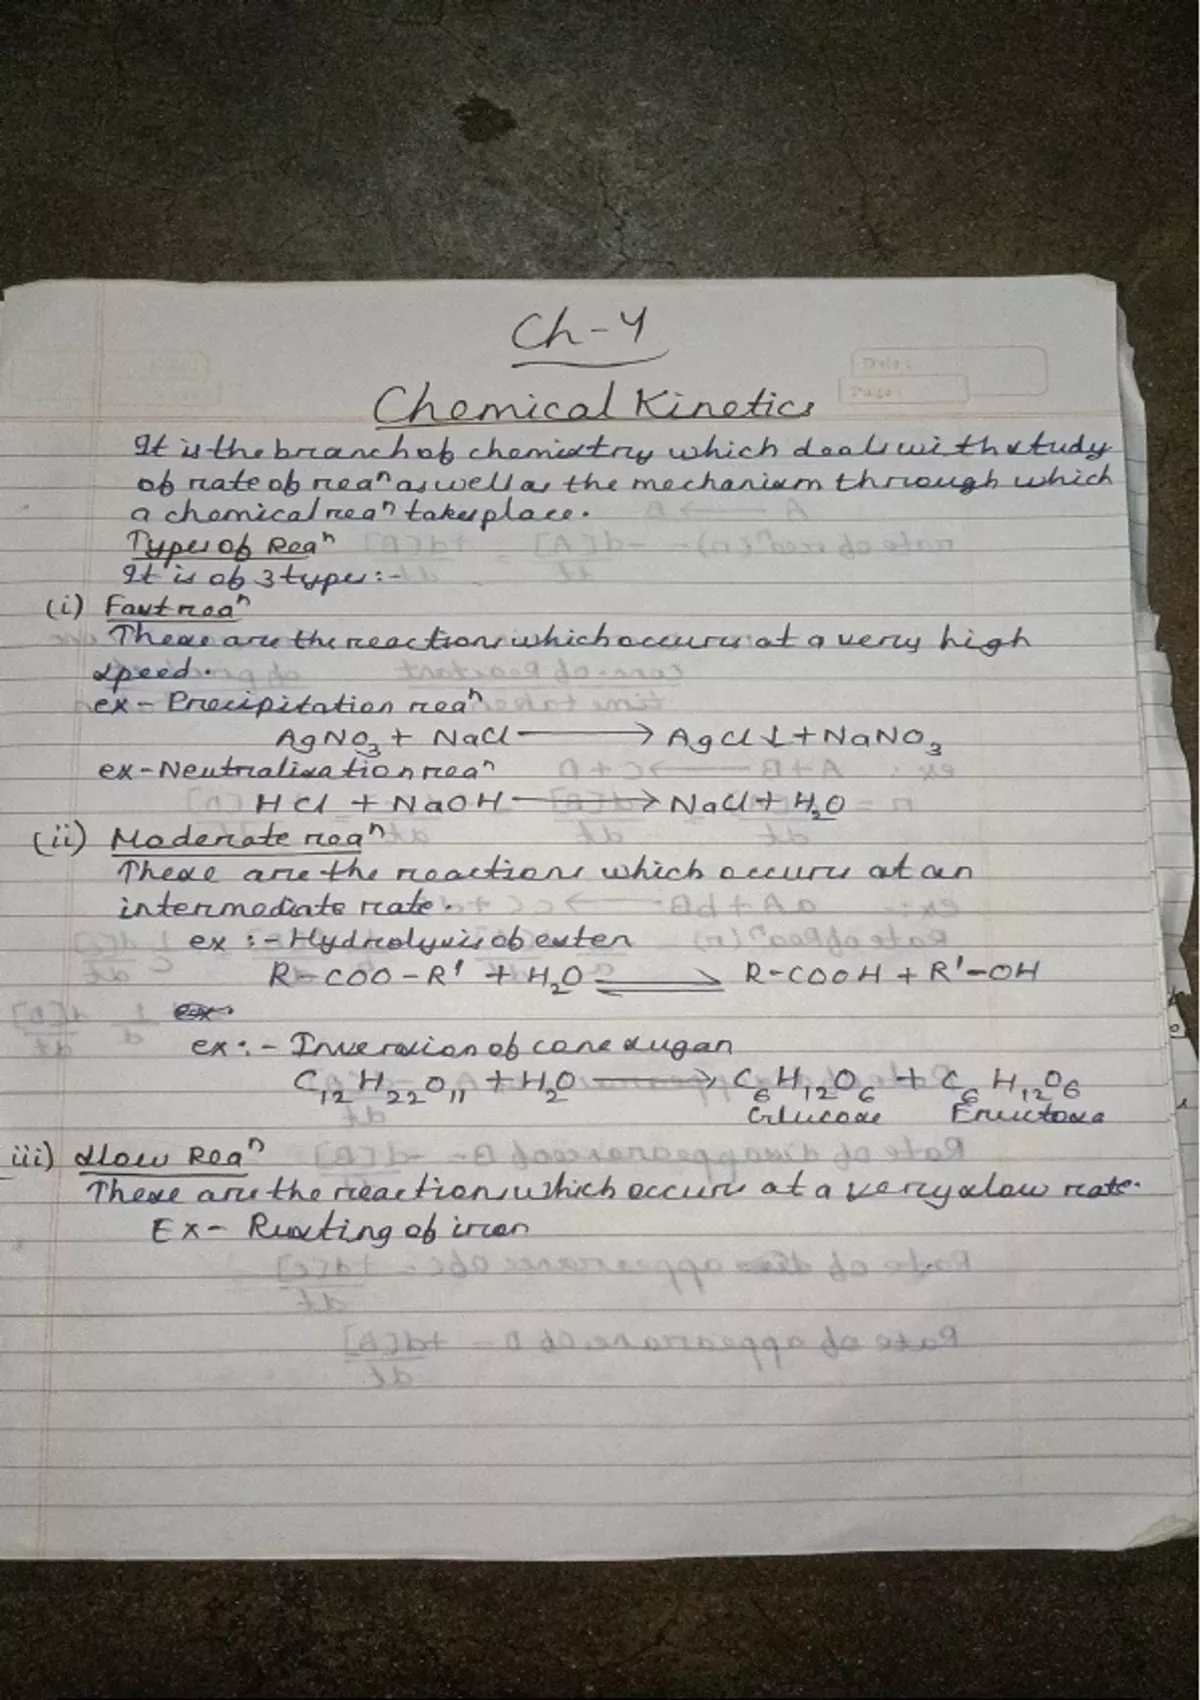 Ch-4
Date:
Page:
Chemical Kinetics
It is the branch of chemistry which deals with study
of rate of rea^n as well as the mechanism through which
a chemical rea^n takes place.
Types of Rea^n
It is of 3 types:-
(i) Fast rea^n
These are the reactions which occurs at a very high
speed.
ex- Precipitation rea^n
AgNO₃ + NaCl ⟶ AgCl↓ + NaNO₃
ex- Neutralisation rea^n
HCl + NaOH ⟶ NaCl + H₂O
(ii) Moderate rea^n
These are the reactions which occurs at an
intermediate rate.
ex :- Hydrolysis of ester
R-COO-R' + H₂O ⇌ R-COOH + R'-OH
ex:- Inversion of cane sugar
C₁₂H₂₂O₁₁ + H₂O ⟶ C₆H₁₂O₆ + C₆H₁₂O₆
Glucose Fructose
iii) slow Rea^n
These are the reactions which occurs at a very slow rate.
Ex- Rusting of iron